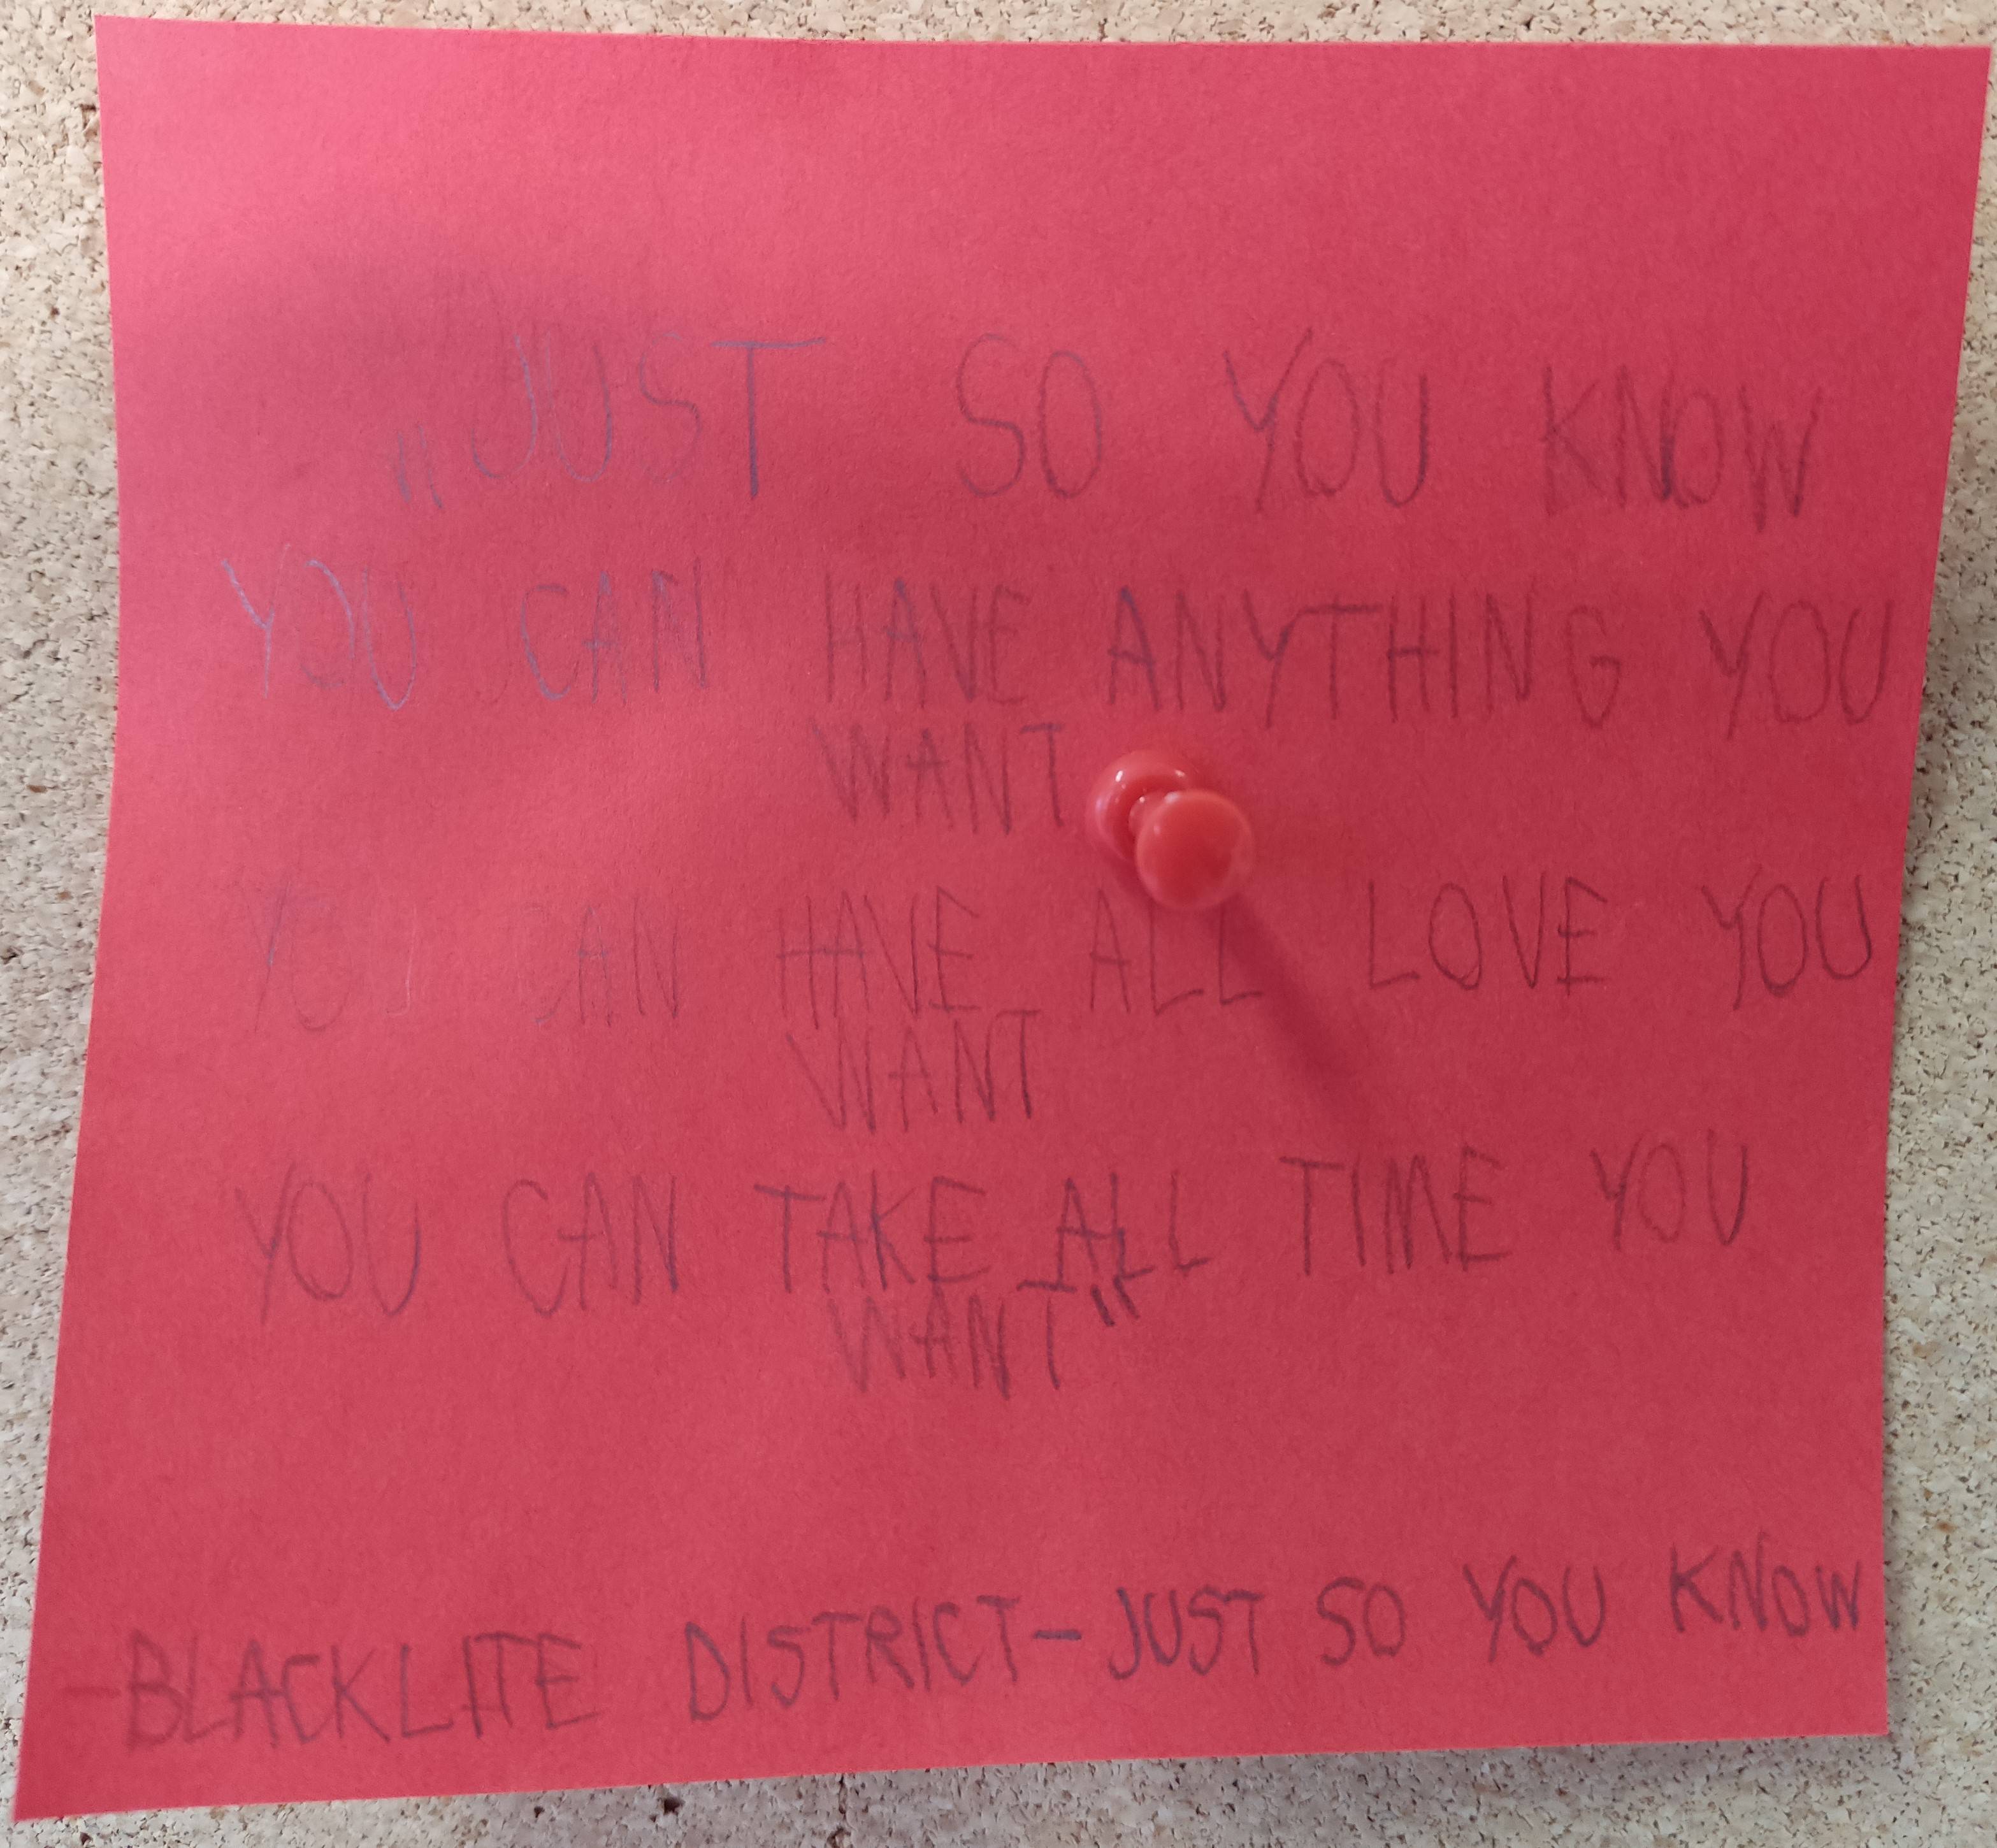 „JUST SO YOU KNOW
YOU CAN HAVE ANYTHING YOU
WANT
YOU CAN HAVE ALL LOVE YOU
WANT
YOU CAN TAKE ALL TIME YOU
WANT“
-BLACKLITE DISTRICT-JUST SO YOU KNOW